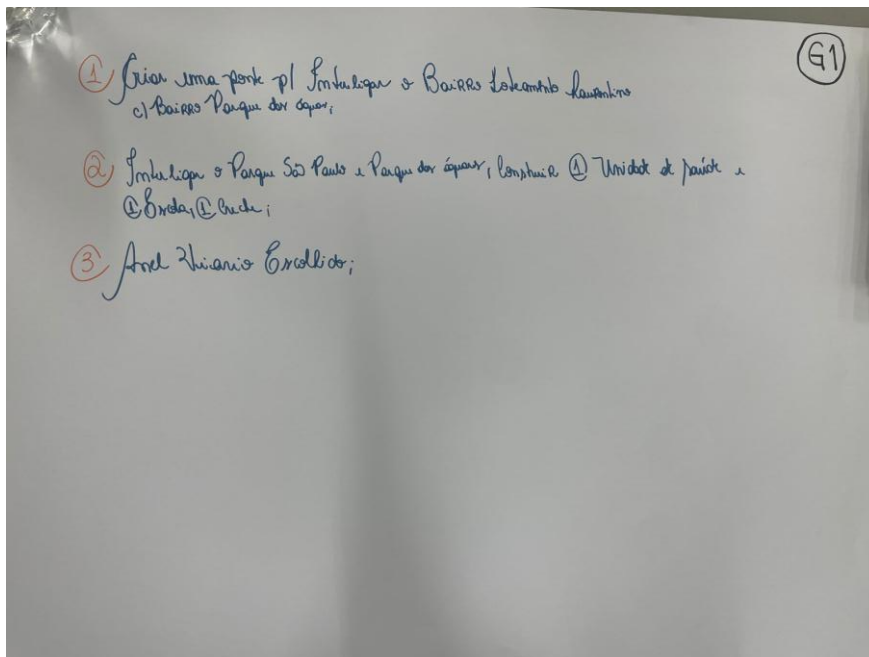 G1
① Criar uma ponte p/ Interligar o Bairro Loteamento Laurentino
c/ Bairro Parque das águas;
② Interligar o Parque São Paulo e Parque das águas, Construir ① Unidade de saúde e
① Escola, ① Creche;
③ Anel Viário Escolhido;